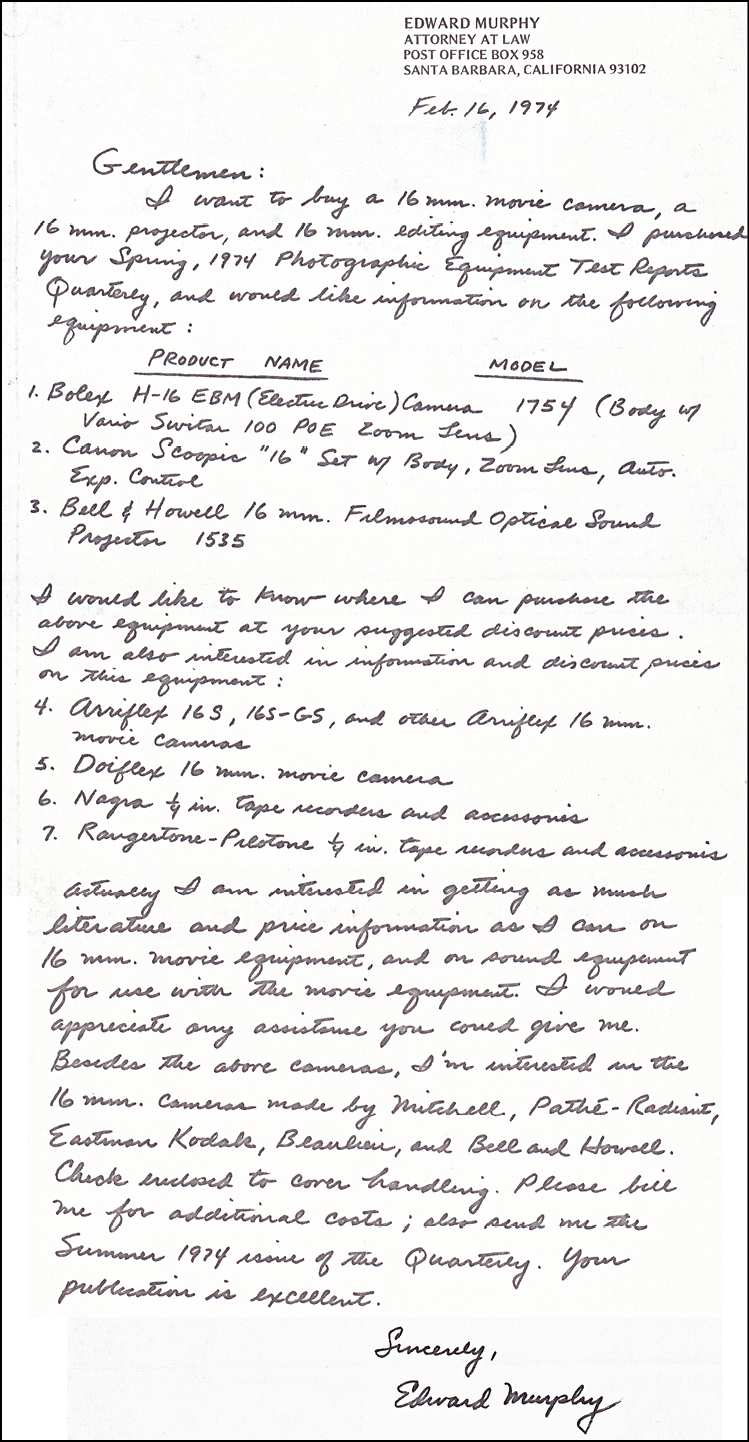 EDWARD MURPHY
ATTORNEY AT LAW
POST OFFICE BOX 958
SANTA BARBARA, CALIFORNIA 93102
Feb. 16, 1974
Gentlemen:
I want to buy a 16 mm. movie camera, a
16 mm. projector, and 16 mm. editing equipment. I purchased
your Spring, 1974 Photographic Equipment Test Reports
Quarterly, and would like information on the following
equipment:
PRODUCT NAME MODEL
1. Bolex H-16 EBM (Electric Drive) Camera 1754 (Body w/
Vario Switar 100 POE Zoom Lens)
2. Canon Scoopic "16" Set w/ Body, Zoom Lens, Auto.
Exp. Control
3. Bell & Howell 16 mm. Filmosound Optical Sound
Projector 1535
I would like to know where I can purchase the
above equipment at your suggested discount prices.
I am also interested in information and discount prices
on this equipment:
4. Arriflex 16S, 16S-GS, and other Arriflex 16 mm.
movie cameras
5. Doiflex 16 mm. movie camera
6. Nagra 1/4 in. tape recorders and accessories
7. Rangertone-Pilotone 1/4 in. tape recorders and accessories
Actually I am interested in getting as much
literature and price information as I can on
16 mm. movie equipment, and on sound equipment
for use with the movie equipment. I would
appreciate any assistance you could give me.
Besides the above cameras, I'm interested in the
16 mm. cameras made by Mitchell, Pathé-Radiant,
Eastman Kodak, Beaulieu, and Bell and Howell.
Check enclosed to cover handling. Please bill
me for additional costs; also send me the
Summer 1974 issue of the Quarterly. Your
publication is excellent.
Sincerely,
Edward Murphy